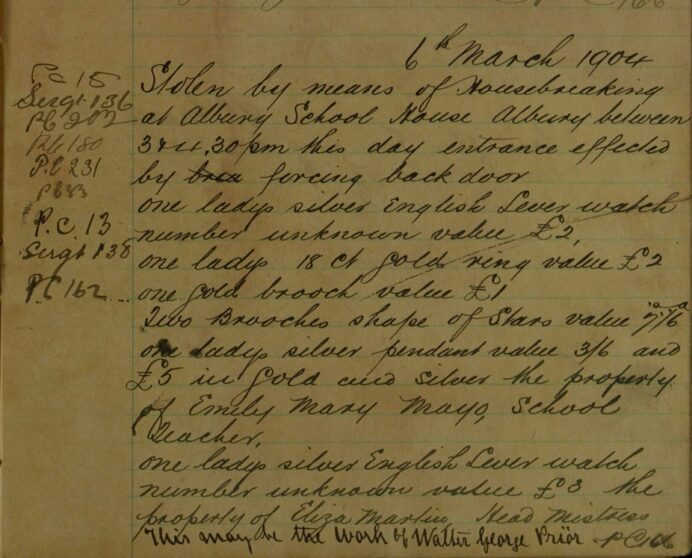 6th March 1904
P.C 15
Sergt 136
P.C 202
P.C 180
P.C 231
P.C 53
P.C. 13
Sergt 138
P.C 162
Stolen by means of Housebreaking
at Albury School House Albury between
3 & 4.30 pm this day entrance effected
by forcing back door
one ladys silver English Lever watch
number unknown value £2,
one ladys 18 ct gold ring value £2
one gold brooch value £1
Two Brooches shape of Stars value 7/6
one ladys silver pendant value 3/6 and
£5 in gold and silver the property
of Emily Mary Mayo, School
Teacher,
one ladys silver English Lever watch
number unknown value £3 the
property of Eliza Martin Head Mistress
This may be the work of Walter George Prior PC